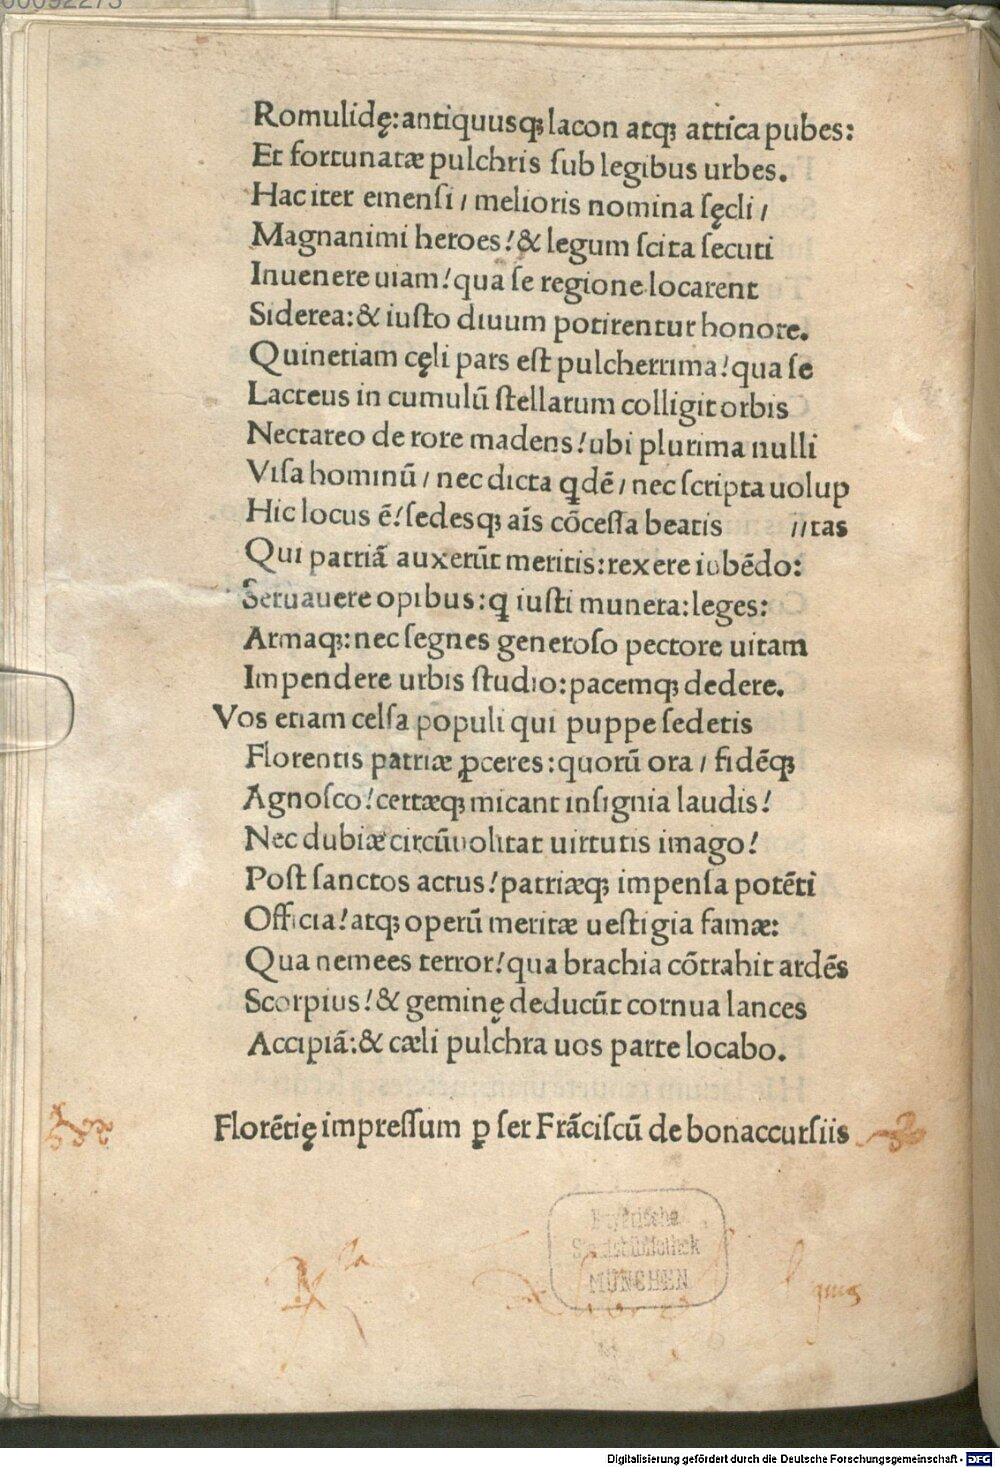 00092273
Romulidę:antiquusq; lacon atq; attica pubes:
Et fortunatæ pulchris ſub legibus urbes.
Hac iter emenſi / melioris nomina ſęcli /
Magnanimi heroes! & legum ſcita ſecuti
Inuenere uiam! qua ſe regione locarent
Siderea: & iuſto diuum potirentur honore.
Quinetiam cęli pars eſt pulcherrima! qua ſe
Lacteus in cumulũ ſtellarum colligit orbis
Nectareo de rore madens! ubi plurima nulli
Viſa hominũ / nec dicta qdẽ / nec ſcripta uolup
Hic locus ẽ! ſedesq; aĩs cõceſſa beatis //tas
Qui patriã auxerũt meritis: rexere iubẽdo:
Seruauere opibus: ꝗ iuſti munera: leges:
Armaq;: nec ſegnes generoſo pectore uitam
Impendere urbis ſtudio: pacemq; dedere.
Vos etiam celſa populi qui puppe ſedetis
Florentis patriæ ꝓceres: quorũ ora / fidẽq;
Agnoſco! certæq; micant inſignia laudis!
Nec dubiæ circũuolitat uirtutis imago!
Poſt ſanctos actus! patriæq; impenſa potẽti
Officia! atq; operũ meritæ ueſtigia famæ:
Qua nemees terror! qua brachia cõtrahit ardẽs
Scorpius! & geminę deducũt cornua lances
Accipiã: & cæli pulchra uos parte locabo.
Florẽtię impreſſum ꝑ ſer Frãciſcũ de bonaccurſiis
Bayerische
Staatsbibliothek
MÜNCHEN
Digitalisierung gefördert durch die Deutsche Forschungsgemeinschaft - DFG